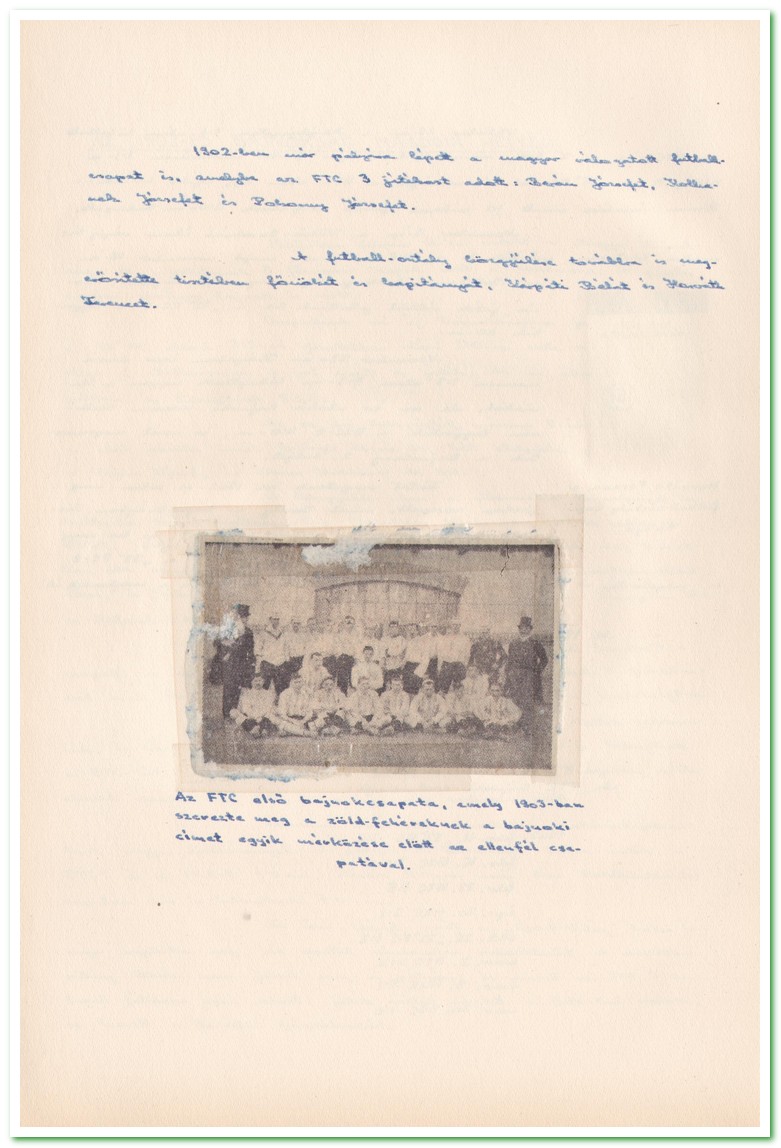 1902-ben már pályára lépett a magyar válogatott futball-
csapat is, amelybe az FTC 3 játékost adott: Berán Józsefet,
nek Józsefet és Pokorny Józsefet.
A futball-osztály közgyűlése továbbra is meg-
erősítette tisztében és kapitányát, Kárpáti Bélát és Horváth
Ferencet.
Az FTC első bajnokcsapata, amely 1903-ban
szerezte meg a zöld-fehéreknek a bajnoki
címet egyik mérkőzése előtt az ellenfél csa-
patával.